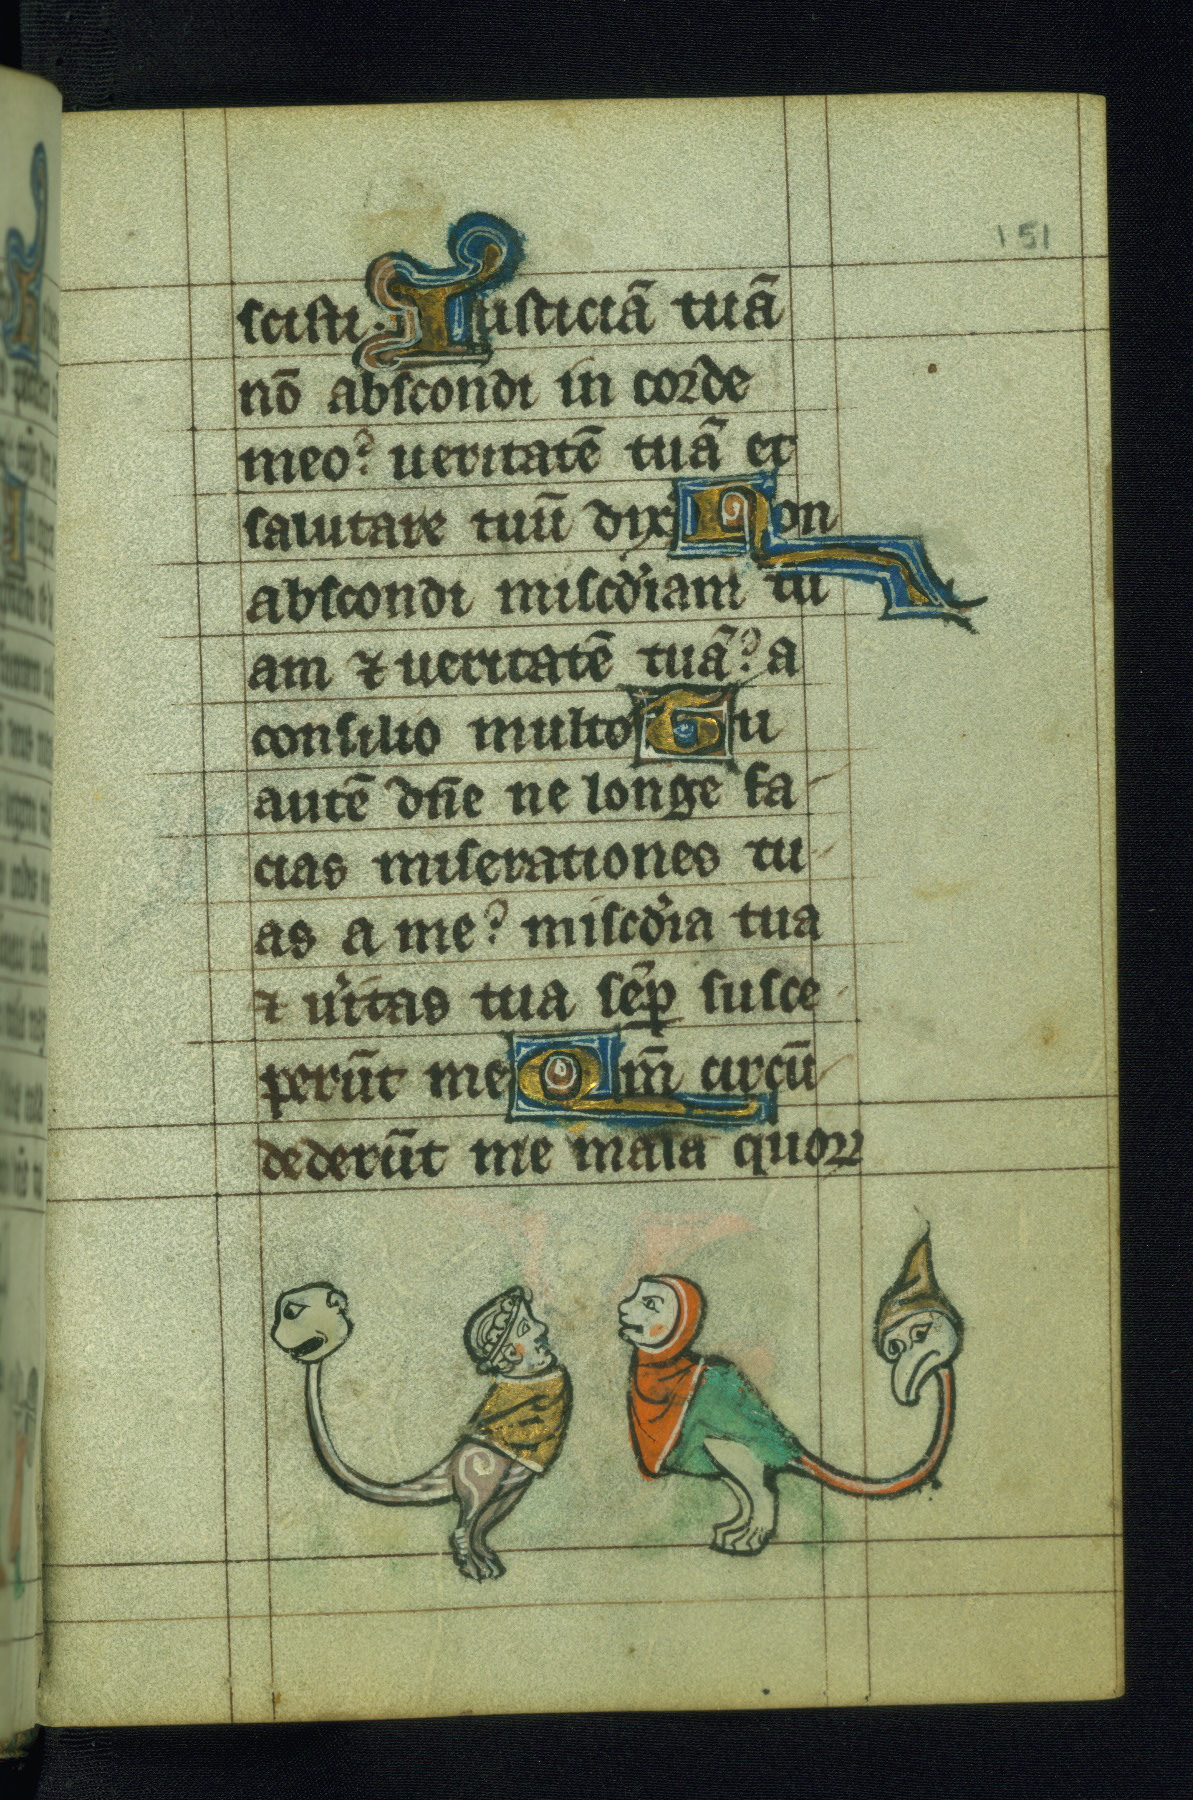 151
scisti. Iusticiā tuā
nō abscondi in corde
meo? ueritatē tuā et
salutare tuū dixi Non
abscondi misc̄diam tu
am ⁊ ueritatē tuā? a
consilio multo Tu
autē dn̄e ne longe fa
cias miserationes tu
as a me? misc̄dia tua
⁊ uītas tua sēp susce
perūt me Qm̄ circū
dederūt me mala quoꝝ